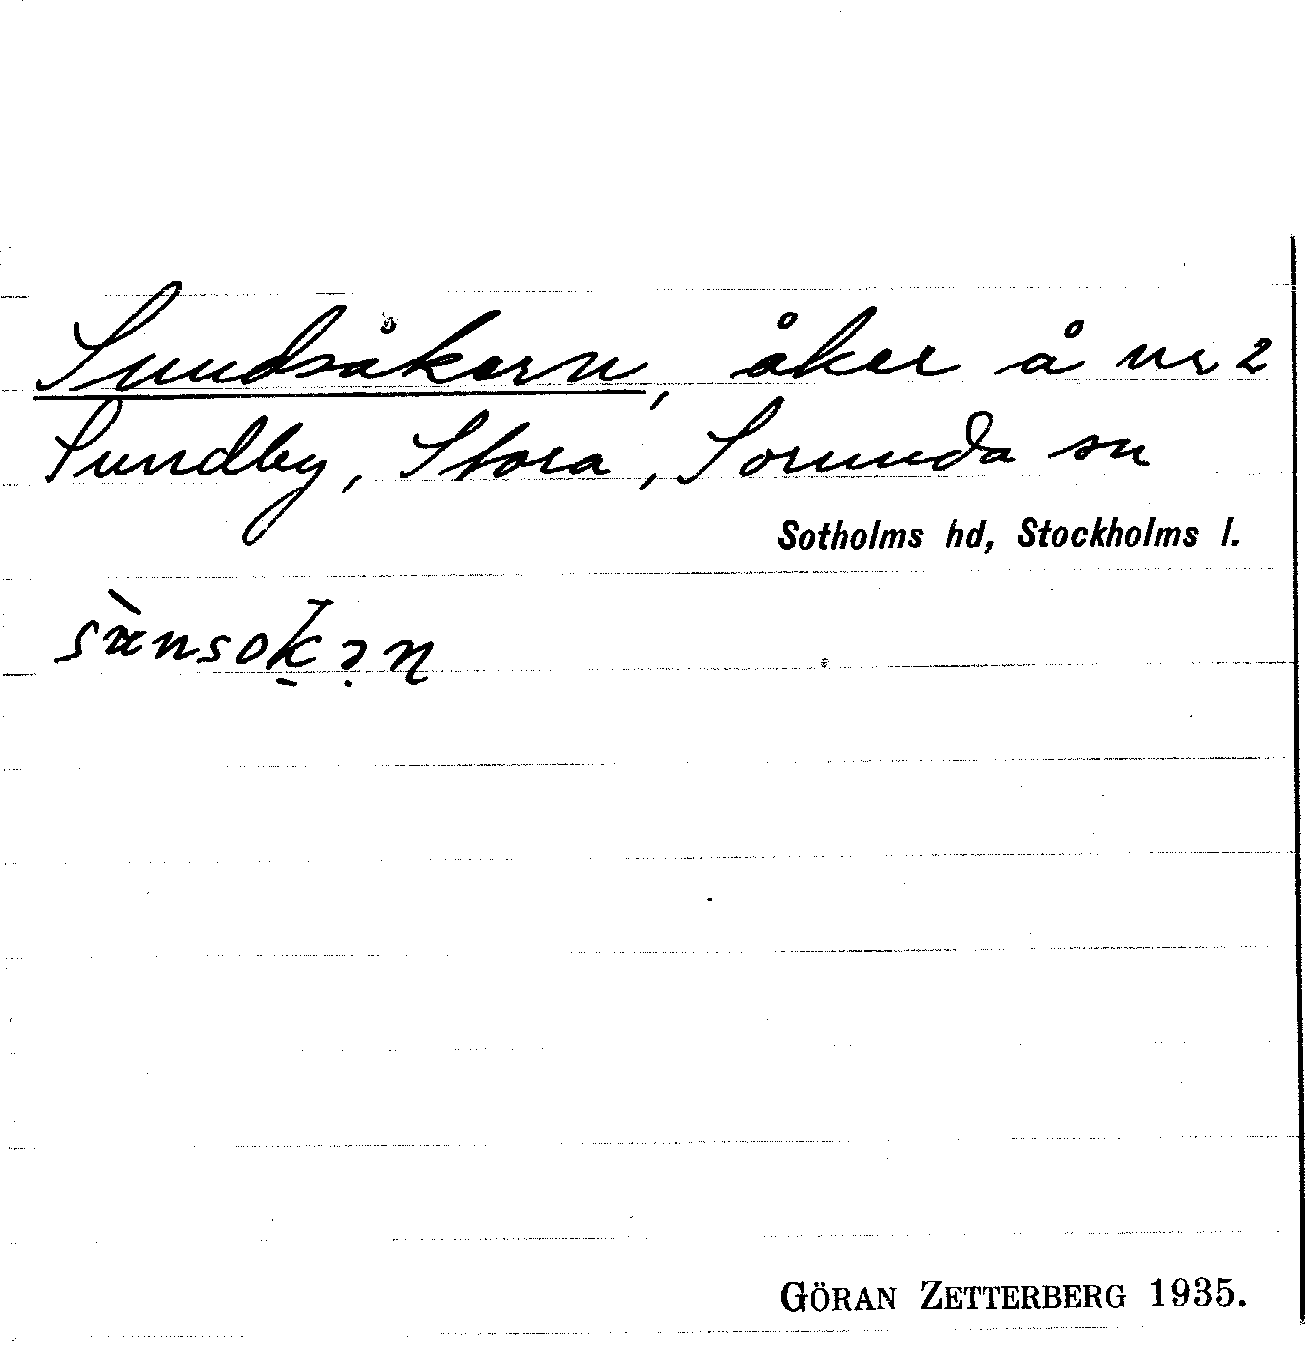 Sundsåkern, åker å nr 2
Sundby, Stora, Sorunda sn
Sotholms hd, Stockholms l.
GÖRAN ZETTERBERG 1935.